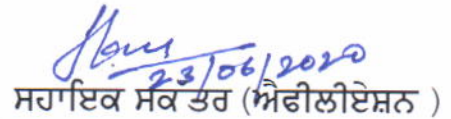 23/06/2020
ਸਹਾਇਕ ਸਕੱਤਰ (ਐਫੀਲੀਏਸ਼ਨ )